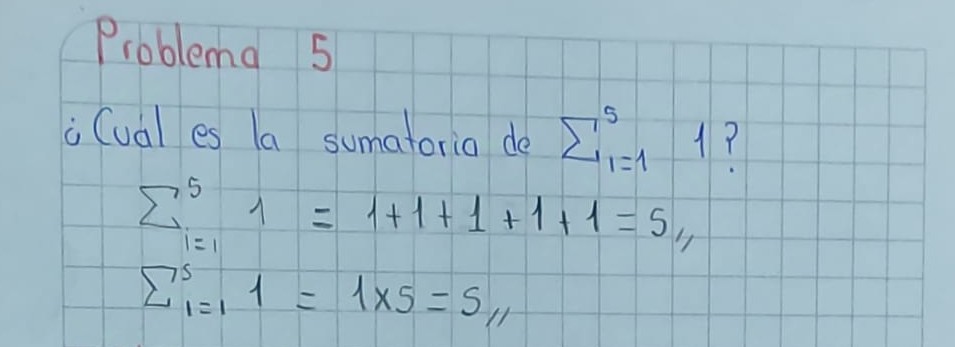 Problema 5
¿Cuál es la sumatoria de ∑⁵ᵢ₌₁ 1?
∑⁵ᵢ₌₁ 1 = 1+1+1+1+1 = 5,,
∑⁵ᵢ₌₁ 1 = 1×5 = 5,,